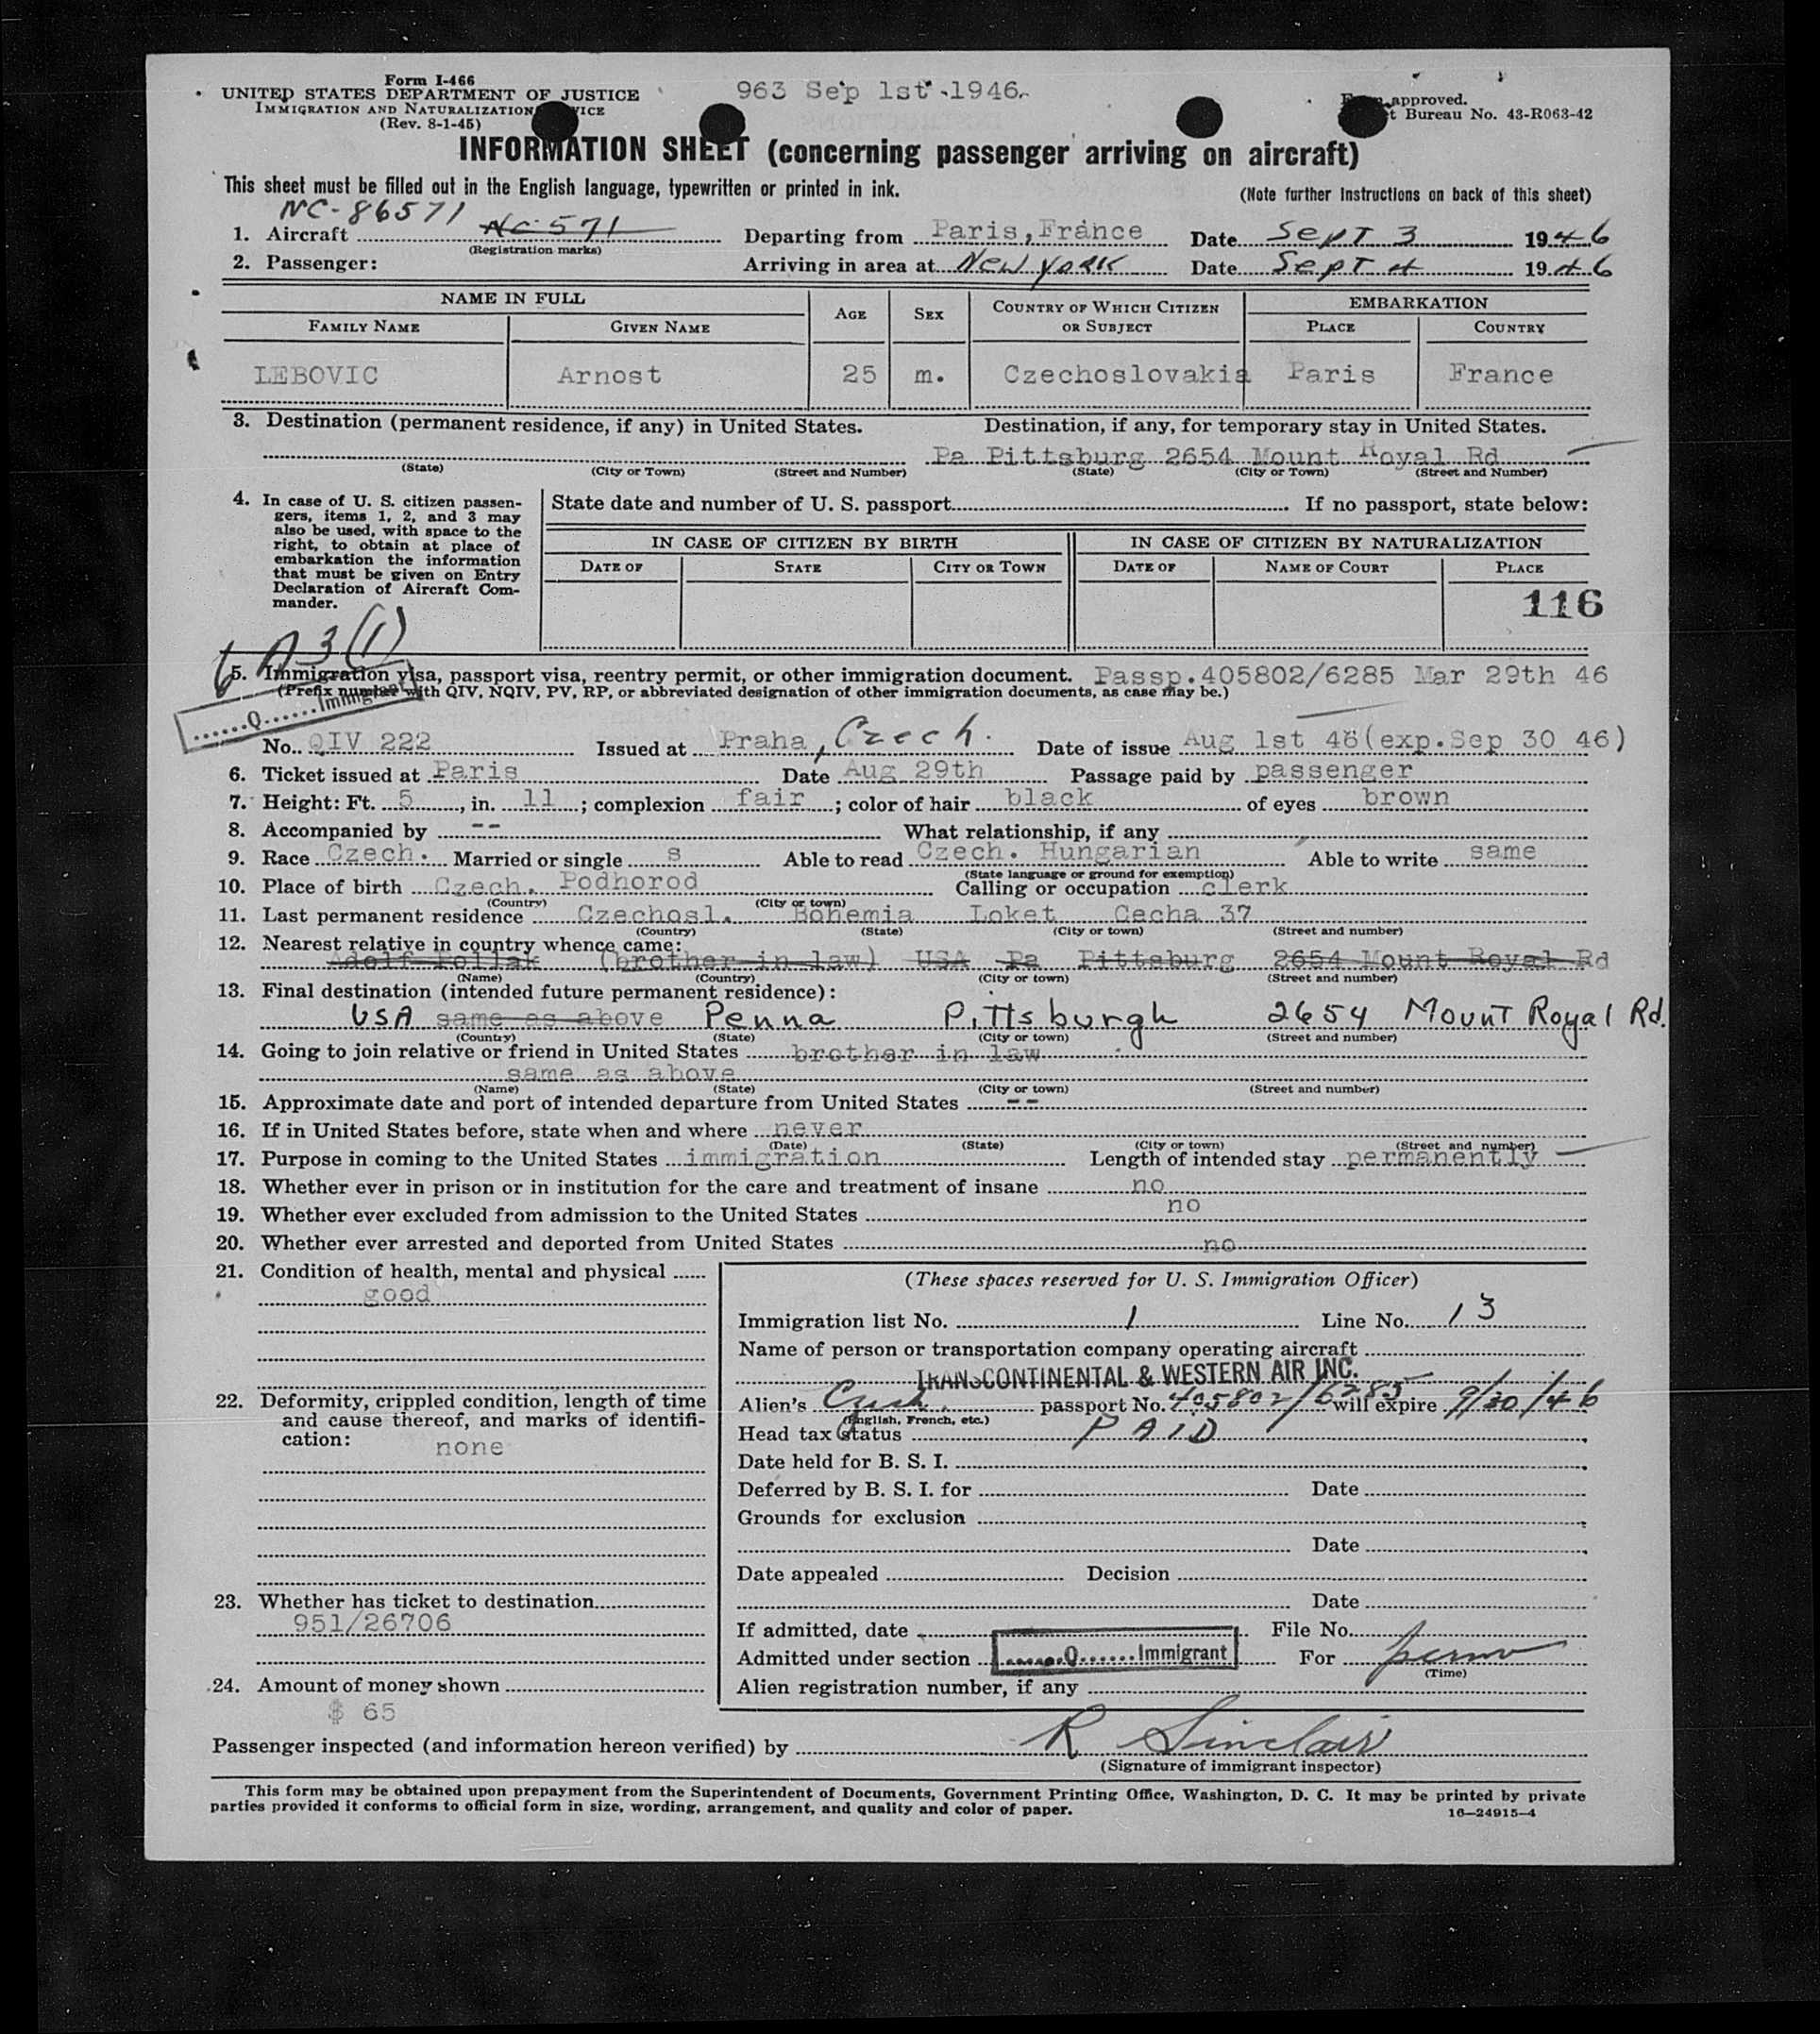 Form I-466
UNITED STATES DEPARTMENT OF JUSTICE
IMMIGRATION AND NATURALIZATION
(Rev. 8-1-45)
963 Sep 1st 1946
approved.
Bureau No. 43-R063-42
INFORMATION SHEET (concerning passenger arriving on aircraft)
This sheet must be filled out in the English language, typewritten or printed in ink.
(Note further instructions on back of this sheet)
NC-86571
1. Aircraft NC 571 Departing from Paris, France Date Sept 3 1946
(Registration marks)
2. Passenger: Arriving in area at New York Date Sept 4 1946
NAME IN FULL AGE SEX COUNTRY OF WHICH CITIZEN OR SUBJECT EMBARKATION
FAMILY NAME GIVEN NAME PLACE COUNTRY
LEBOVIC Arnost 25 m. Czechoslovakia Paris France
3. Destination (permanent residence, if any) in United States. Destination, if any, for temporary stay in United States.
Pa Pittsburg 2654 Mount Royal Rd
(State) (City or Town) (Street and Number) (State) (City or Town) (Street and Number)
4. In case of U. S. citizen passen-
gers, items 1, 2, and 3 may
also be used, with space to the
right, to obtain at place of
embarkation the information
that must be given on Entry
Declaration of Aircraft Com-
mander.
State date and number of U. S. passport If no passport, state below:
IN CASE OF CITIZEN BY BIRTH IN CASE OF CITIZEN BY NATURALIZATION
DATE OF STATE CITY OR TOWN DATE OF NAME OF COURT PLACE
116
6 A3(1)
5. Immigration visa, passport visa, reentry permit, or other immigration document. Passp.405802/6285 Mar 29th 46
(Prefix number with QIV, NQIV, PV, RP, or abbreviated designation of other immigration documents, as case may be.)
......Q......Immigrant
No. QIV 222 Issued at Praha, Czech. Date of issue Aug 1st 46(exp.Sep 30 46)
6. Ticket issued at Paris Date Aug 29th Passage paid by passenger
7. Height: Ft. 5, in. 11; complexion fair; color of hair black of eyes brown
8. Accompanied by -- What relationship, if any
9. Race Czech. Married or single s Able to read Czech. Hungarian Able to write same
(State language or ground for exemption)
10. Place of birth Czech. Podhorod Calling or occupation clerk
(Country) (City or town)
11. Last permanent residence Czechosl. Bohemia Loket Cecha 37
(Country) (State) (City or town) (Street and number)
12. Nearest relative in country whence came:
Adolf Pollak (brother in law) USA Pa Pittsburg 2654 Mount Royal Rd
(Name) (Country) (City or town) (Street and number)
13. Final destination (intended future permanent residence):
USA same as above Penna Pittsburgh 2654 Mount Royal Rd.
(Country) (State) (City or town) (Street and number)
14. Going to join relative or friend in United States brother in law
same as above
(Name) (State) (City or town) (Street and number)
15. Approximate date and port of intended departure from United States --
16. If in United States before, state when and where never
(Date) (State) (City or town) (Street and number)
17. Purpose in coming to the United States immigration Length of intended stay permanently
18. Whether ever in prison or in institution for the care and treatment of insane no
19. Whether ever excluded from admission to the United States no
20. Whether ever arrested and deported from United States no
21. Condition of health, mental and physical
good
22. Deformity, crippled condition, length of time
and cause thereof, and marks of identifi-
cation:
none
23. Whether has ticket to destination
951/26706
24. Amount of money shown
$ 65
(These spaces reserved for U. S. Immigration Officer)
Immigration list No. 1 Line No. 13
Name of person or transportation company operating aircraft
TRANSCONTINENTAL & WESTERN AIR INC.
Alien's Czech. passport No. 405802/6285 will expire 9/30/46
(English, French, etc.)
Head tax status PAID
Date held for B. S. I.
Deferred by B. S. I. for Date
Grounds for exclusion
Date
Date appealed Decision
Date
If admitted, date File No.
Admitted under section ......Q......Immigrant For perm
(Time)
Alien registration number, if any
Passenger inspected (and information hereon verified) by R Sinclair
(Signature of immigrant inspector)
This form may be obtained upon prepayment from the Superintendent of Documents, Government Printing Office, Washington, D. C. It may be printed by private
parties provided it conforms to official form in size, wording, arrangement, and quality and color of paper.
16—24915-4